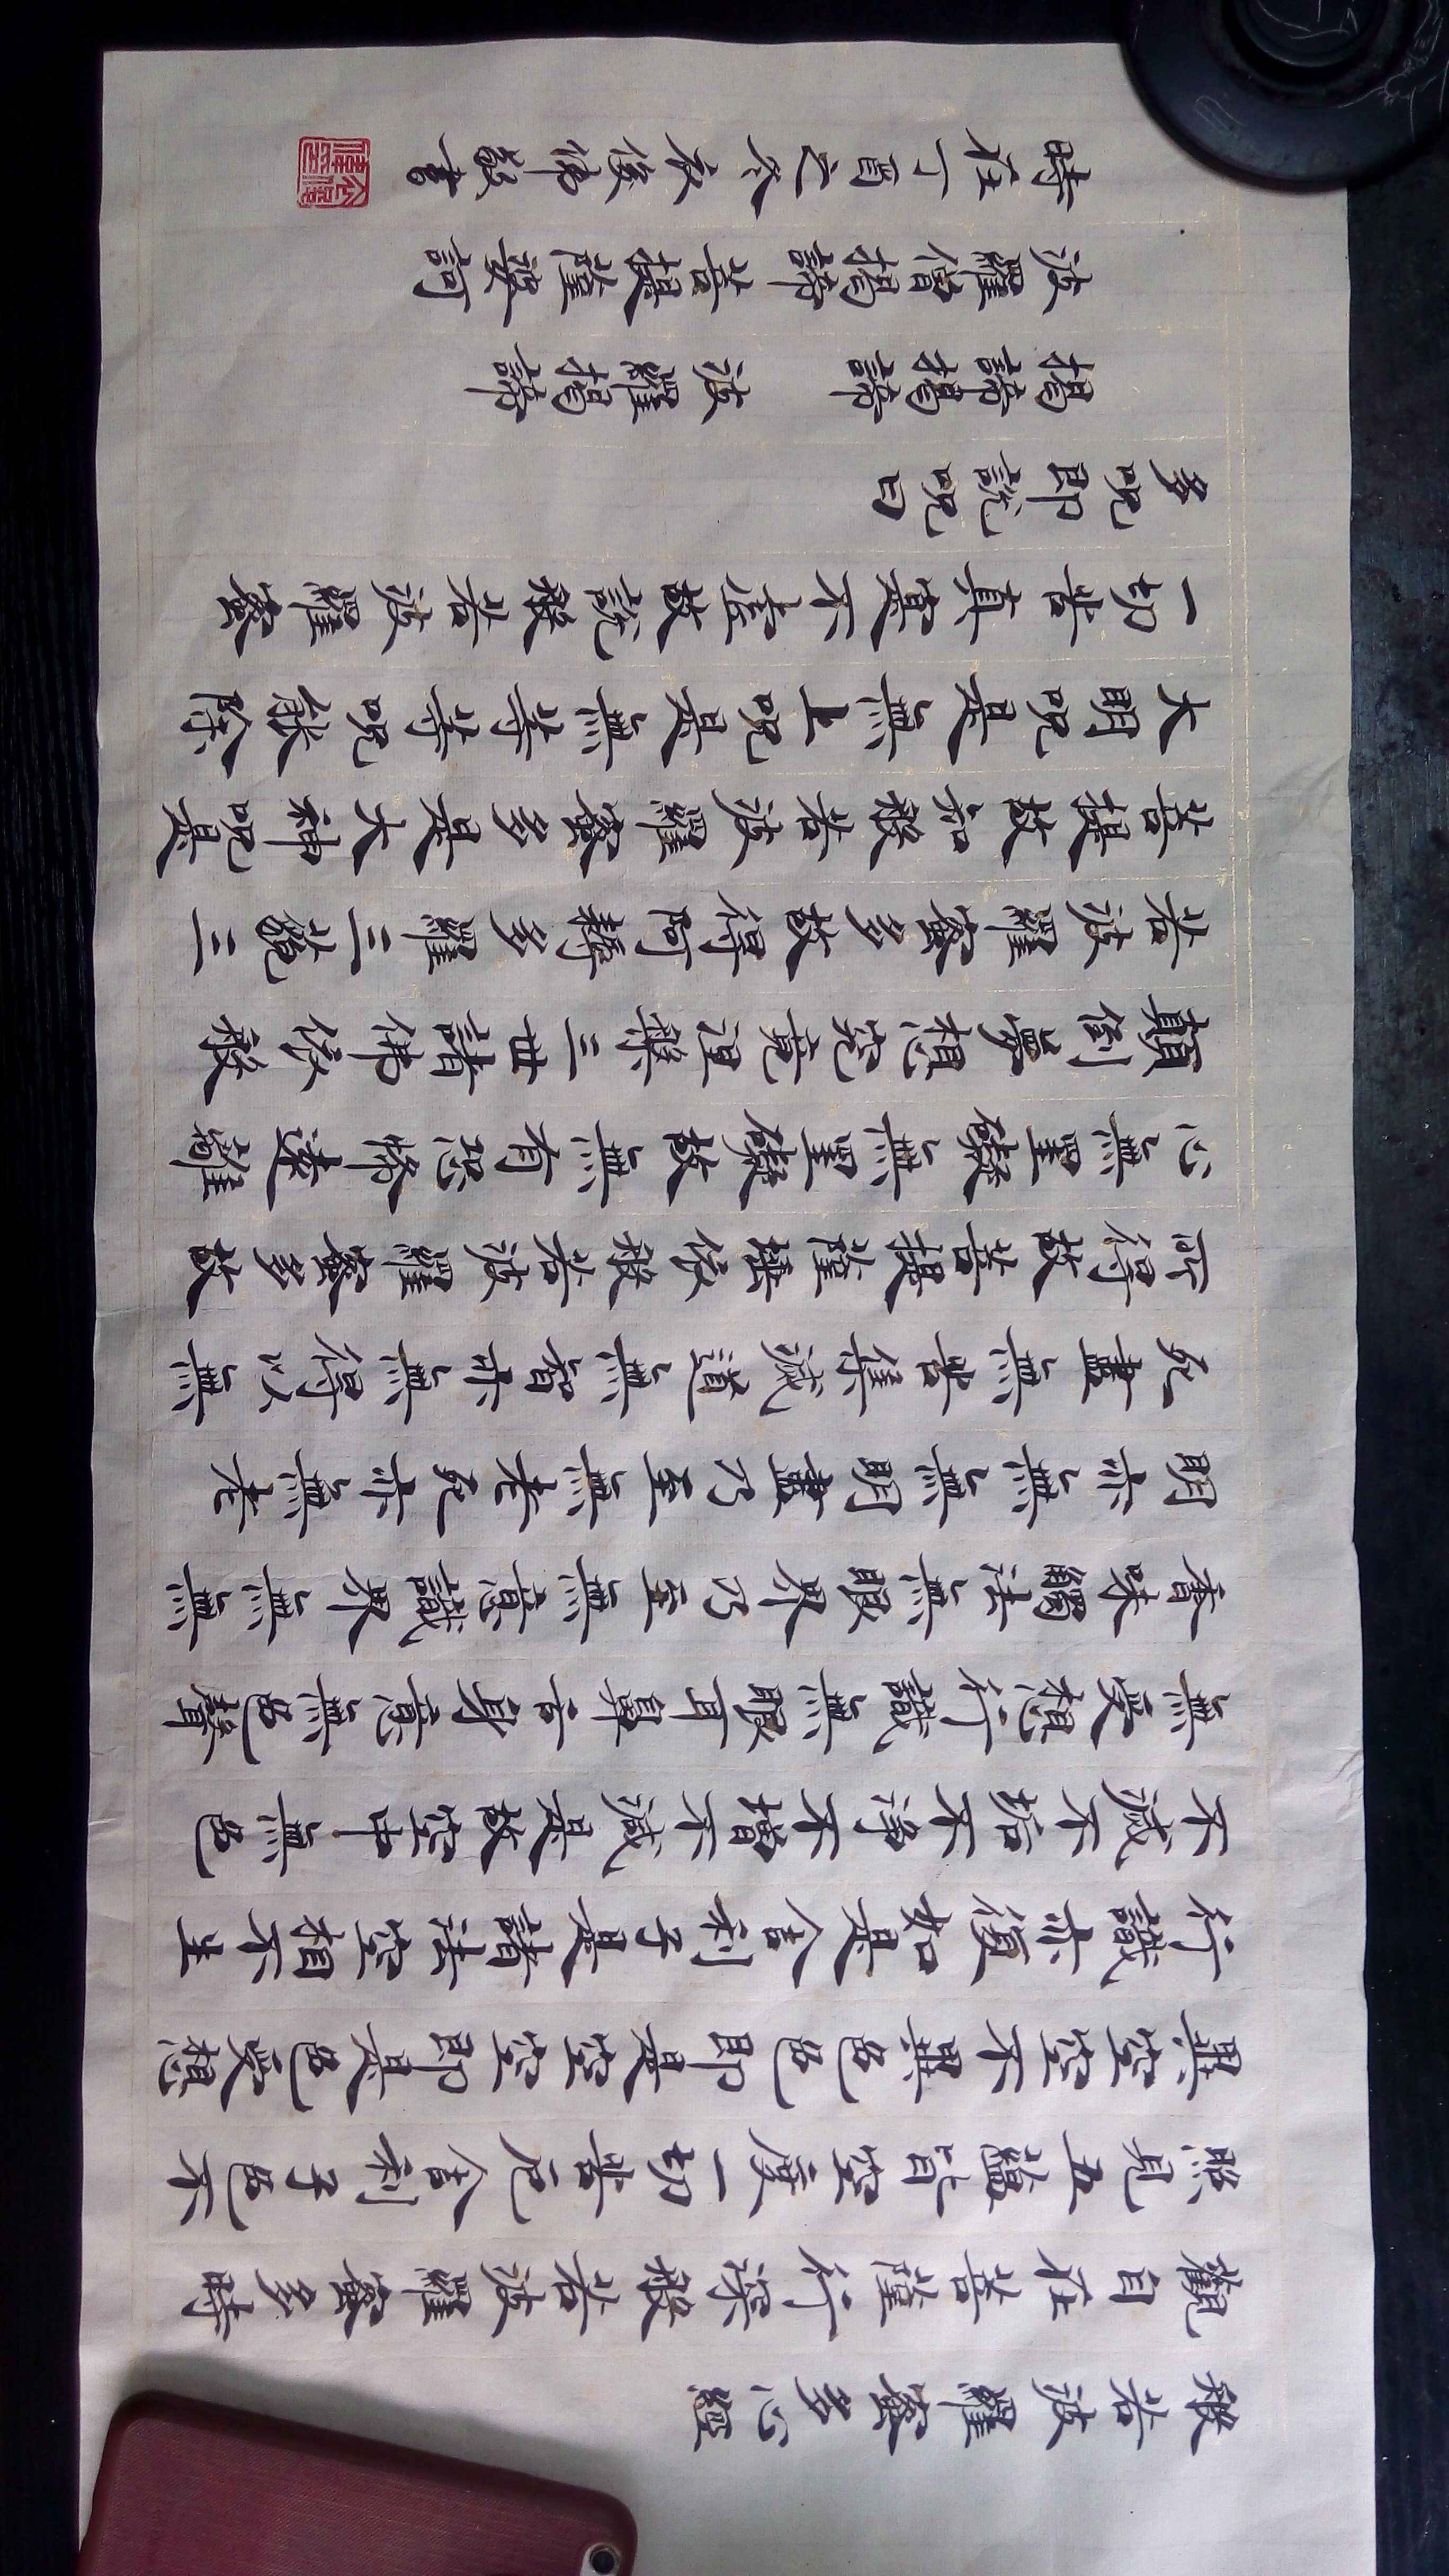 般若波羅蜜多心經
觀自在菩薩行深般若波羅蜜多時
照見五蘊皆空度一切苦厄舍利子色不
異空空不異色色即是空空即是色受想
行識亦復如是舍利子是諸法空相不生
不滅不垢不淨不增不減是故空中無色
無受想行識無眼耳鼻舌身意無色聲
香味觸法無眼界乃至無意識界無無
明亦無無明盡乃至無老死亦無老
死盡無苦集滅道無智亦無得以無
所得故菩提薩埵依般若波羅蜜多故
心無罣礙無罣礙故無有恐怖遠離
顛倒夢想究竟涅槃三世諸佛依般
若波羅蜜多故得阿耨多羅三藐三
菩提故知般若波羅蜜多是大神咒是
大明咒是無上咒是無等等咒能除
一切苦真實不虛故說般若波羅蜜
多咒即說咒曰
揭諦揭諦 波羅揭諦
波羅僧揭諦 菩提薩婆訶
時在丁酉之冬 俊偉敬書